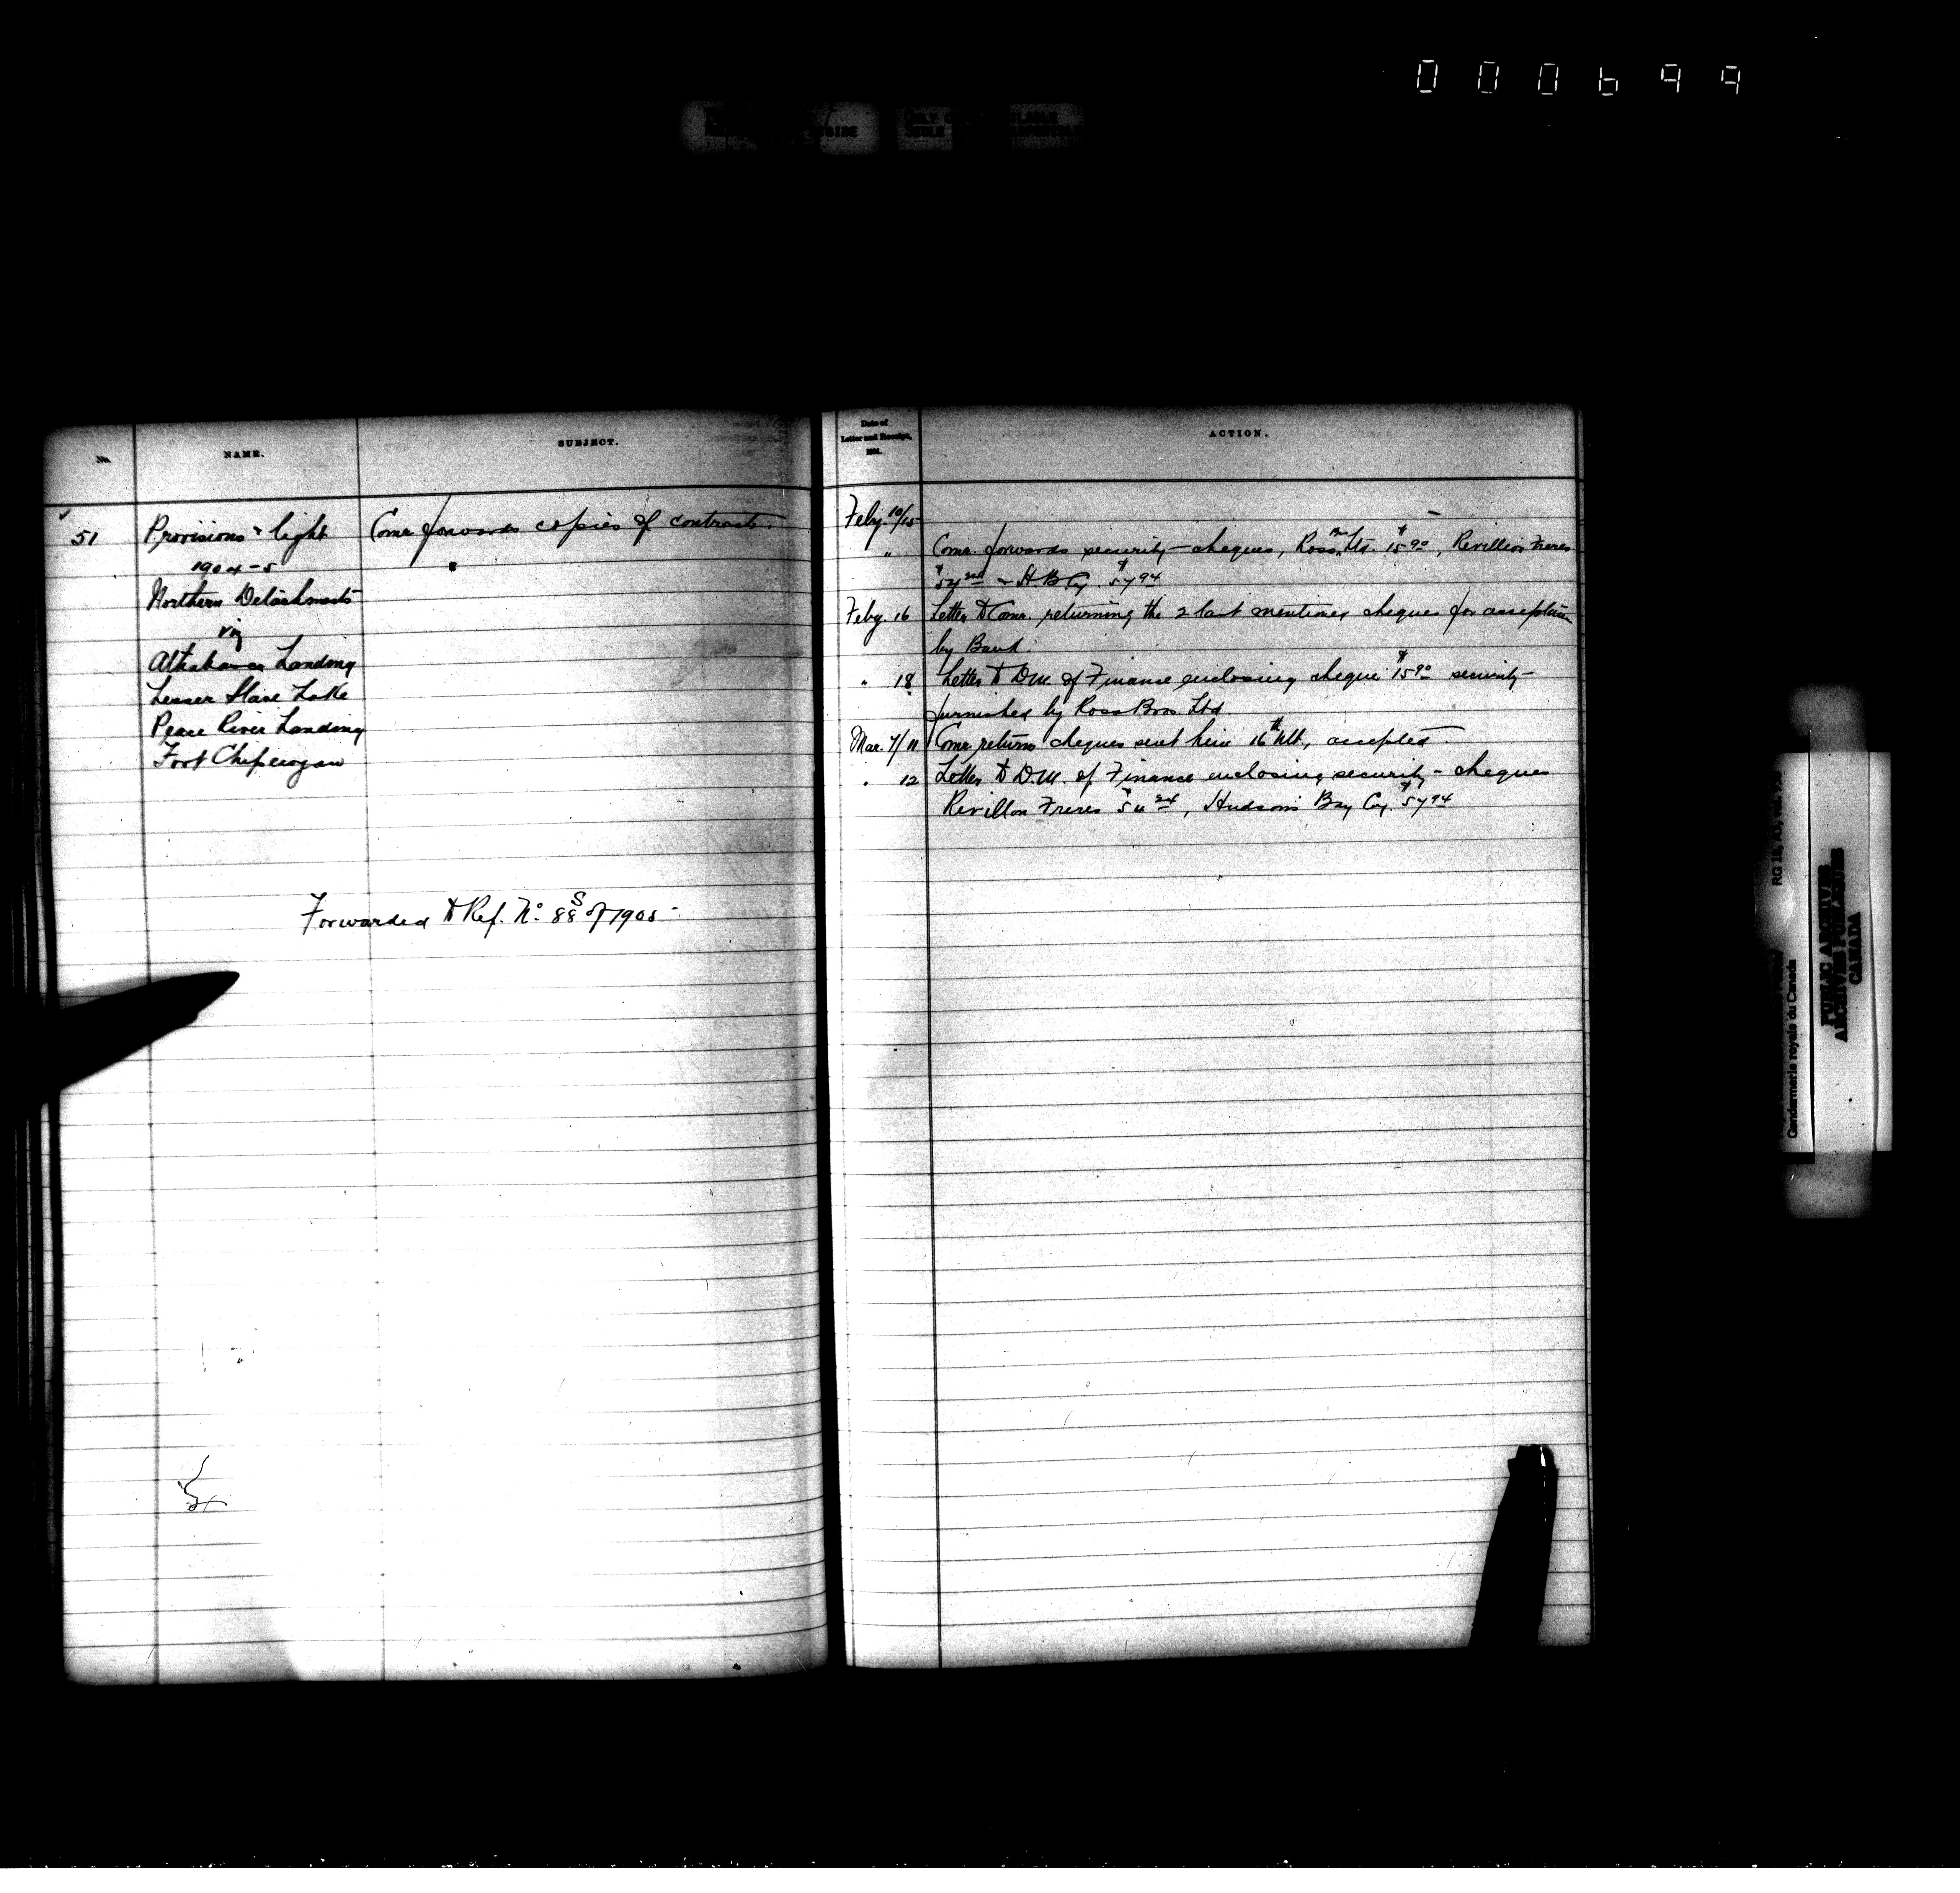 000699
No.
NAME.
SUBJECT.
51
Provisions & light
Comr. forwards copies of contracts.
1904-5
"
Northern Detachments
viz
Athabasca Landing
Lesser Slave Lake
Peace River Landing
Fort Chipewyan
Forwarded to Ref. No. 88 S of 1905-
Date of
Letter and Receipt,
ACTION.
Feby. 10/15
" Comr. forwards security-cheques, Ross Bros Ltd. $15 90, Revillon Freres
& H.B.Cy. $57 94
Feby. 16 Letter to Comr. returning the 2 last mentioned cheques for acceptance
by Bank.
" 18 Letter to D.M. of Finance enclosing cheque $15 90 security-
furnished by Ross Bros. Ltd.
Mar. 7/11 Comr. returns cheques sent him 16th ult., accepted.
" 12 Letter to D.M. of Finance enclosing security-cheques
Revillon Freres, Hudson's Bay Cy. $57 94
PUBLIC ARCHIVES
ARCHIVES PUBLIQUES
CANADA
Gendarmerie royale du Canada